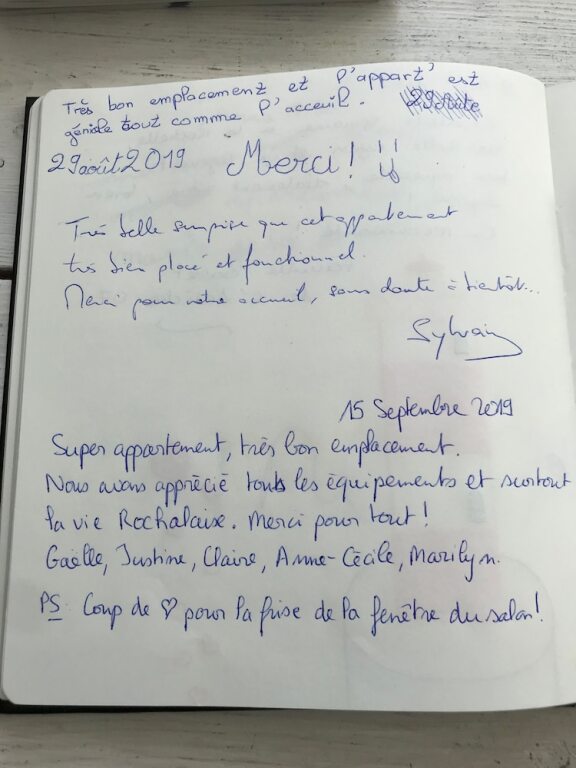 Très bon emplacement et l'appart' est
géniale tout comme l'acceuil.
29 août 2019 Merci! !!
Très belle surprise que cet appartement
très bien placé et fonctionnel.
Merci pour votre accueil, sans doute à bientôt...
Sylvain
15 Septembre 2019
Super appartement, très bon emplacement.
Nous avons apprécié tous les équipements et surtout
la vie Rochalaise. Merci pour tout!
Gaëlle, Justine, Claire, Anne-Cécile, Marilyn.
PS: Coup de ♡ pour la frise de la fenêtre du salon!